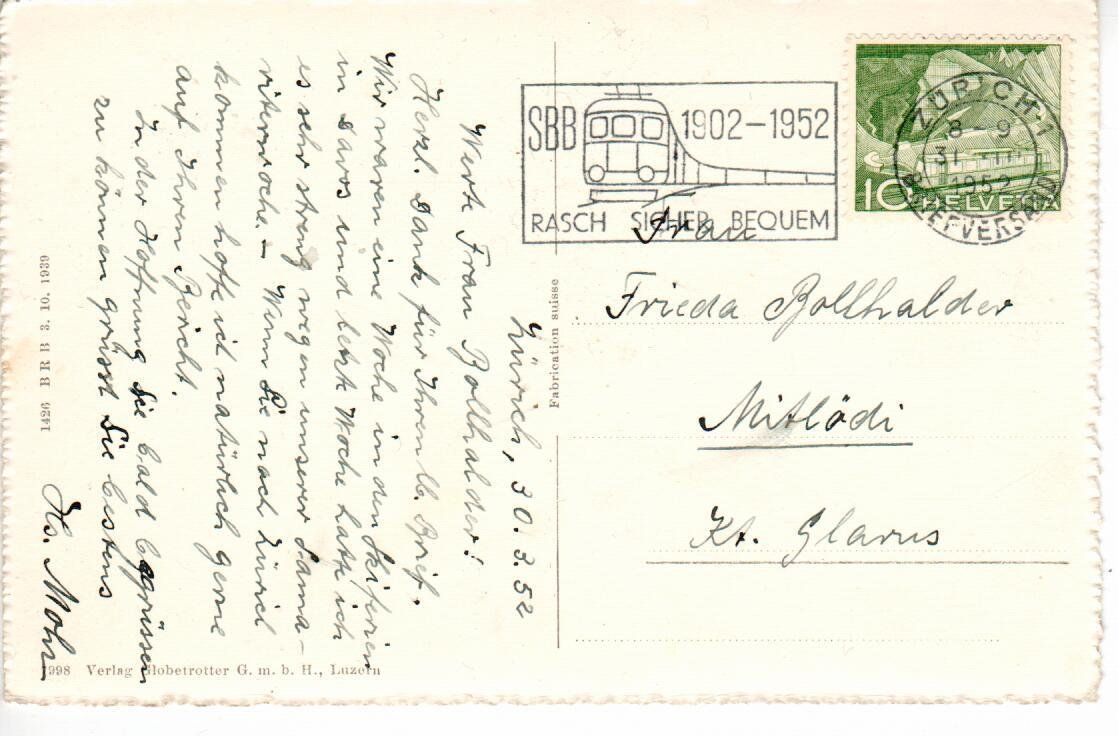 Zürich, 30.3.52
Werte Frau Bollhalder!
Herzl. Dank für Ihren lb. Brief.
Wir waren eine Woche in den Skiferien
in Davos und letzte Woche hatte ich
es sehr streng wegen unserer Sama-
riterwoche. – Wenn Sie nach Zürich
kommen hoffe ich natürlich gerne
auf Ihren Bericht.
In der Hoffnung Sie bald begrüssen
zu können grüsst Sie bestens
Hs. Mohr
1426 BRB 3. 10. 1939
1998 Verlag Globetrotter G. m. b. H., Luzern
Fabrication suisse
SBB 1902–1952
RASCH SICHER BEQUEM
ZÜRICH·1
8–9
31.–III
1952
BRIEFVERSAND
10 HELVETIA
Frau
Frieda Bollhalder
Mitlödi
Kt. Glarus